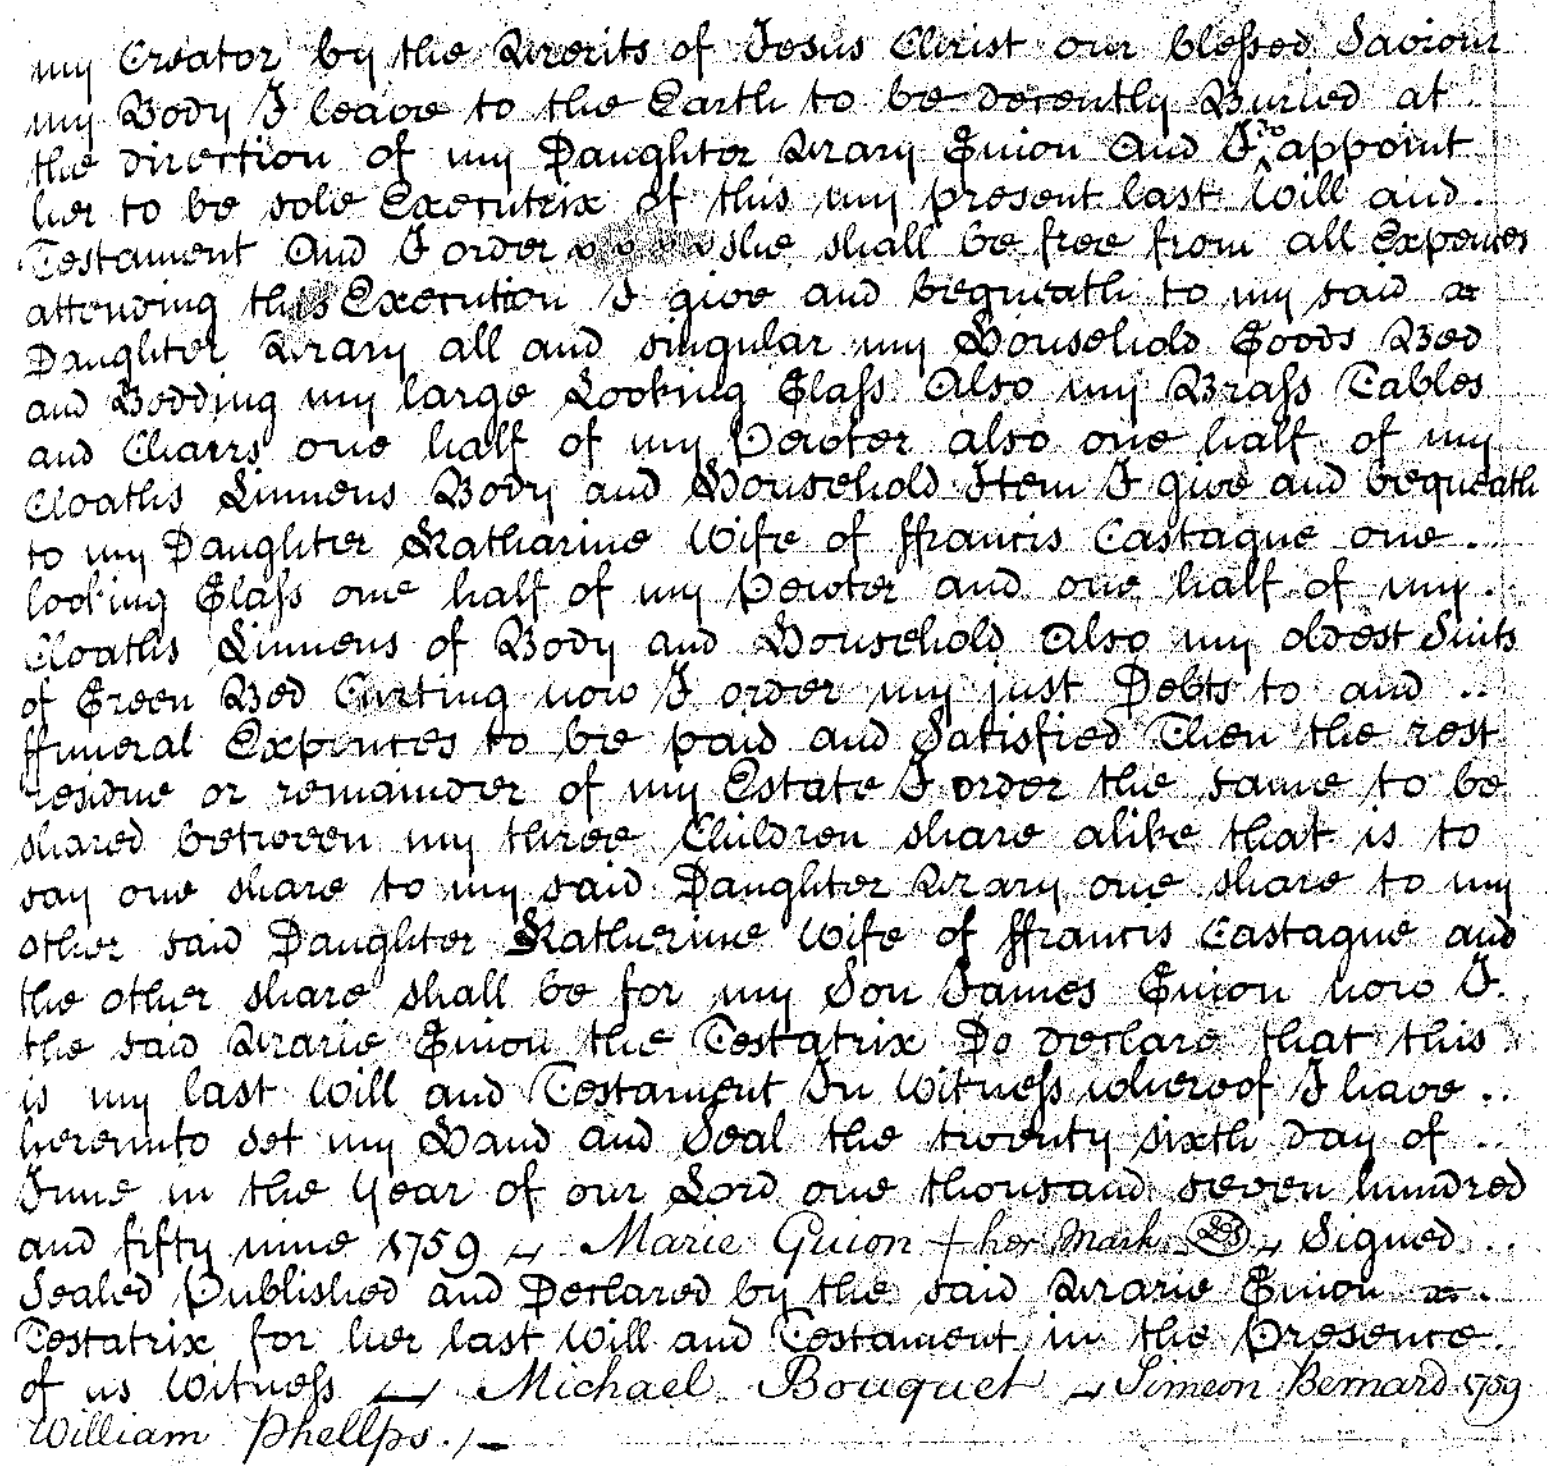 my Creator by the Merits of Jesus Christ our blessed Saviour
my Body I leave to the Earth to be decently Buried at
the direction of my Daughter Mary Guion And I do appoint
her to be sole Executrix of this my present last Will and
Testament And I order she shall be free from all Expences
attending this Execution I give and bequeath to my said
Daughter Mary all and singular my Household Goods Bed
and Bedding my large Looking Glass Also my Brass Tables
and Chairs one half of my Pewter also one half of my
Cloaths Linnens Body and Household Item I give and bequeath
to my Daughter Katharine Wife of ffrancis Castague one
looking Glass one half of my Pewter and one half of my
Cloaths Linnens of Body and Household Also my oldest Suits
of Green Bed Curting now I order my just Debts to and
ffuneral Expences to be paid and Satisfied Then the rest
residue or remainder of my Estate I order the same to be
shared between my three Children share alike that is to
say one share to my said Daughter Mary one share to my
other said Daughter Katherine Wife of ffrancis Castague and
the other share shall be for my Son James Guion now I
the said Marie Guion the Testatrix Do declare that this
is my last Will and Testament In Witness whereof I have
hereunto set my Hand and Seal the twenty sixth day of
June in the Year of our Lord one thousand seven hundred
and fifty nine 1759 Marie Guion + her Mark LS Signed
Sealed Published and Declared by the said Marie Guion
Testatrix for her last Will and Testament in the Presence
of us Witness Michael Bouquet Simeon Bernard 1759
William Phellps